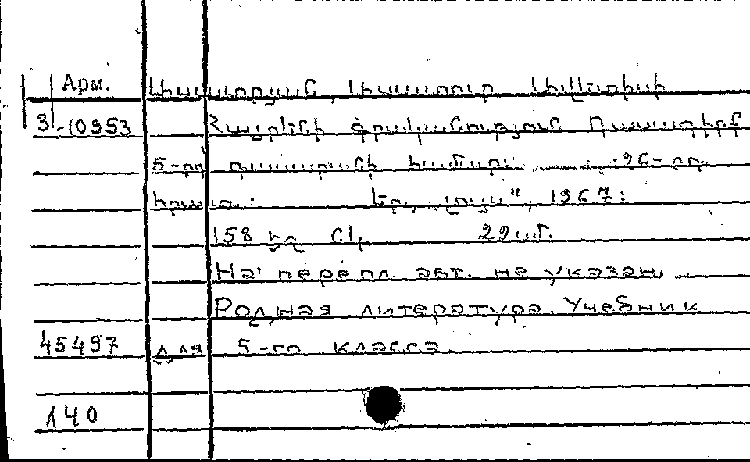 Арм.
3-10953 Հայրենի գրականություն Դասագիրք
5-րդ դասարանի համար 26-րդ
հրատ. Եր., „Լույս", 1967:
158 էջ 22 սմ.
На перепл. авт. не указан.
Родная литература. Учебник
45497 для 5-го класса.
140